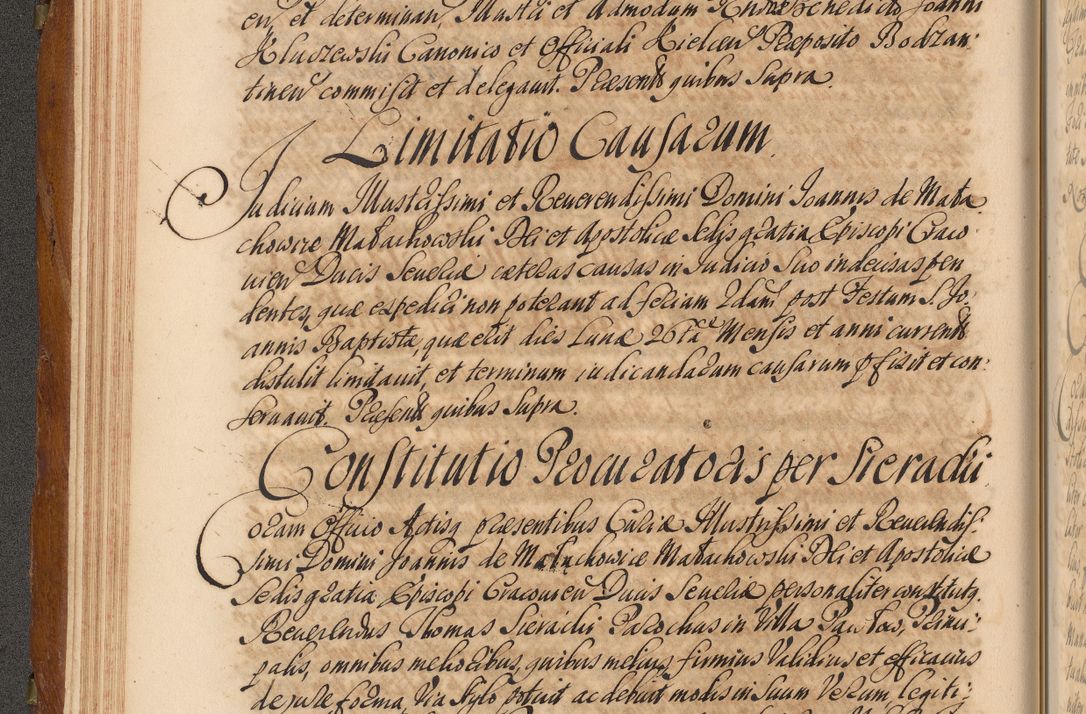 en, et determinan, Illustri et Admodum Rndo Benedicto Joanni
Kluszewski Canonico et Officiali Kielcen Præposito Bodzan-
tinen commisit et delegavit. Præsent quibus Supra.
Limitatio Causarum.
Judicium Illustrissimi et Reverendissimi Domini Joannis de Mała
chowice Małachowski Dei et Apostolicæ Sedis gratia Episcopi Craco
vien Ducis Severiæ cæteras causas in Judicio Suo indecisas pen
dentes, quæ expediri non poterant ad feriam 2dam post Festum S. Jo
annis Baptistæ, quæ erit dies Lunæ 26ta Mensis et anni currents
distulit limitavit, et terminum iudicandarum causarum pfixit et con-
servavit. Præsent quibus Supra.
Constitutio Procuratoris per Sieradii
Coram Officio Actisq præsentibus Curiæ Illustrissimi et Reverendis-
simi Domini Joannis de Małachowice Małachowski Dei et Apostolicæ
Sedis gratia Episcopi Cracovien Ducis Severiæ personaliter constituts
Reverendus Thomas Sieradii Parochus in Villa Princi-
palis, omnibus melioribus, quibus melius, firmius Validius et efficacius
de jure forma, Via Stylo potuit ac debuit modis in Suum Verum, legiti-